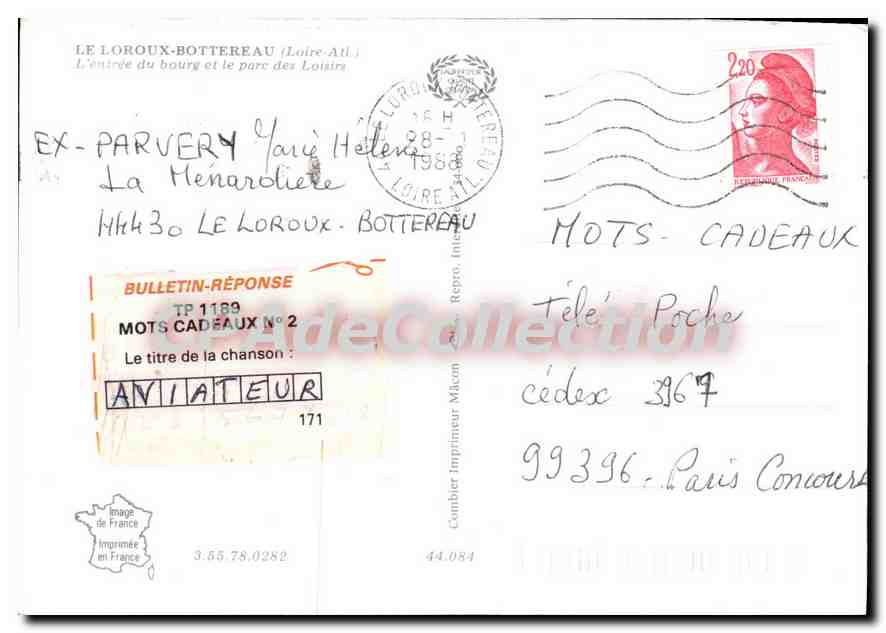 LE LOROUX-BOTTEREAU (Loire-Atl.)
L'entrée du bourg et le parc des Loisirs
EX- PARVERY Marie Hélène
La Ménardière
44430 LE LOROUX- BOTTEREAU
44 LE LOROUX BOTTEREAU
16 H
28 - 1
1988
LOIRE ATL.
2,20
REPUBLIQUE FRANÇAISE
BULLETIN-RÉPONSE
TP 1189
MOTS CADEAUX Nº 2
Le titre de la chanson :
AVIATEUR
171
MOTS - CADEAUX
Télé Poche
Cédex 3967
99396 - Paris Concours
CPAdeCollection
Combier Imprimeur Mâcon
Repro. Interdite
Image
de France
Imprimée
en France
3.55.78.0282
44.084